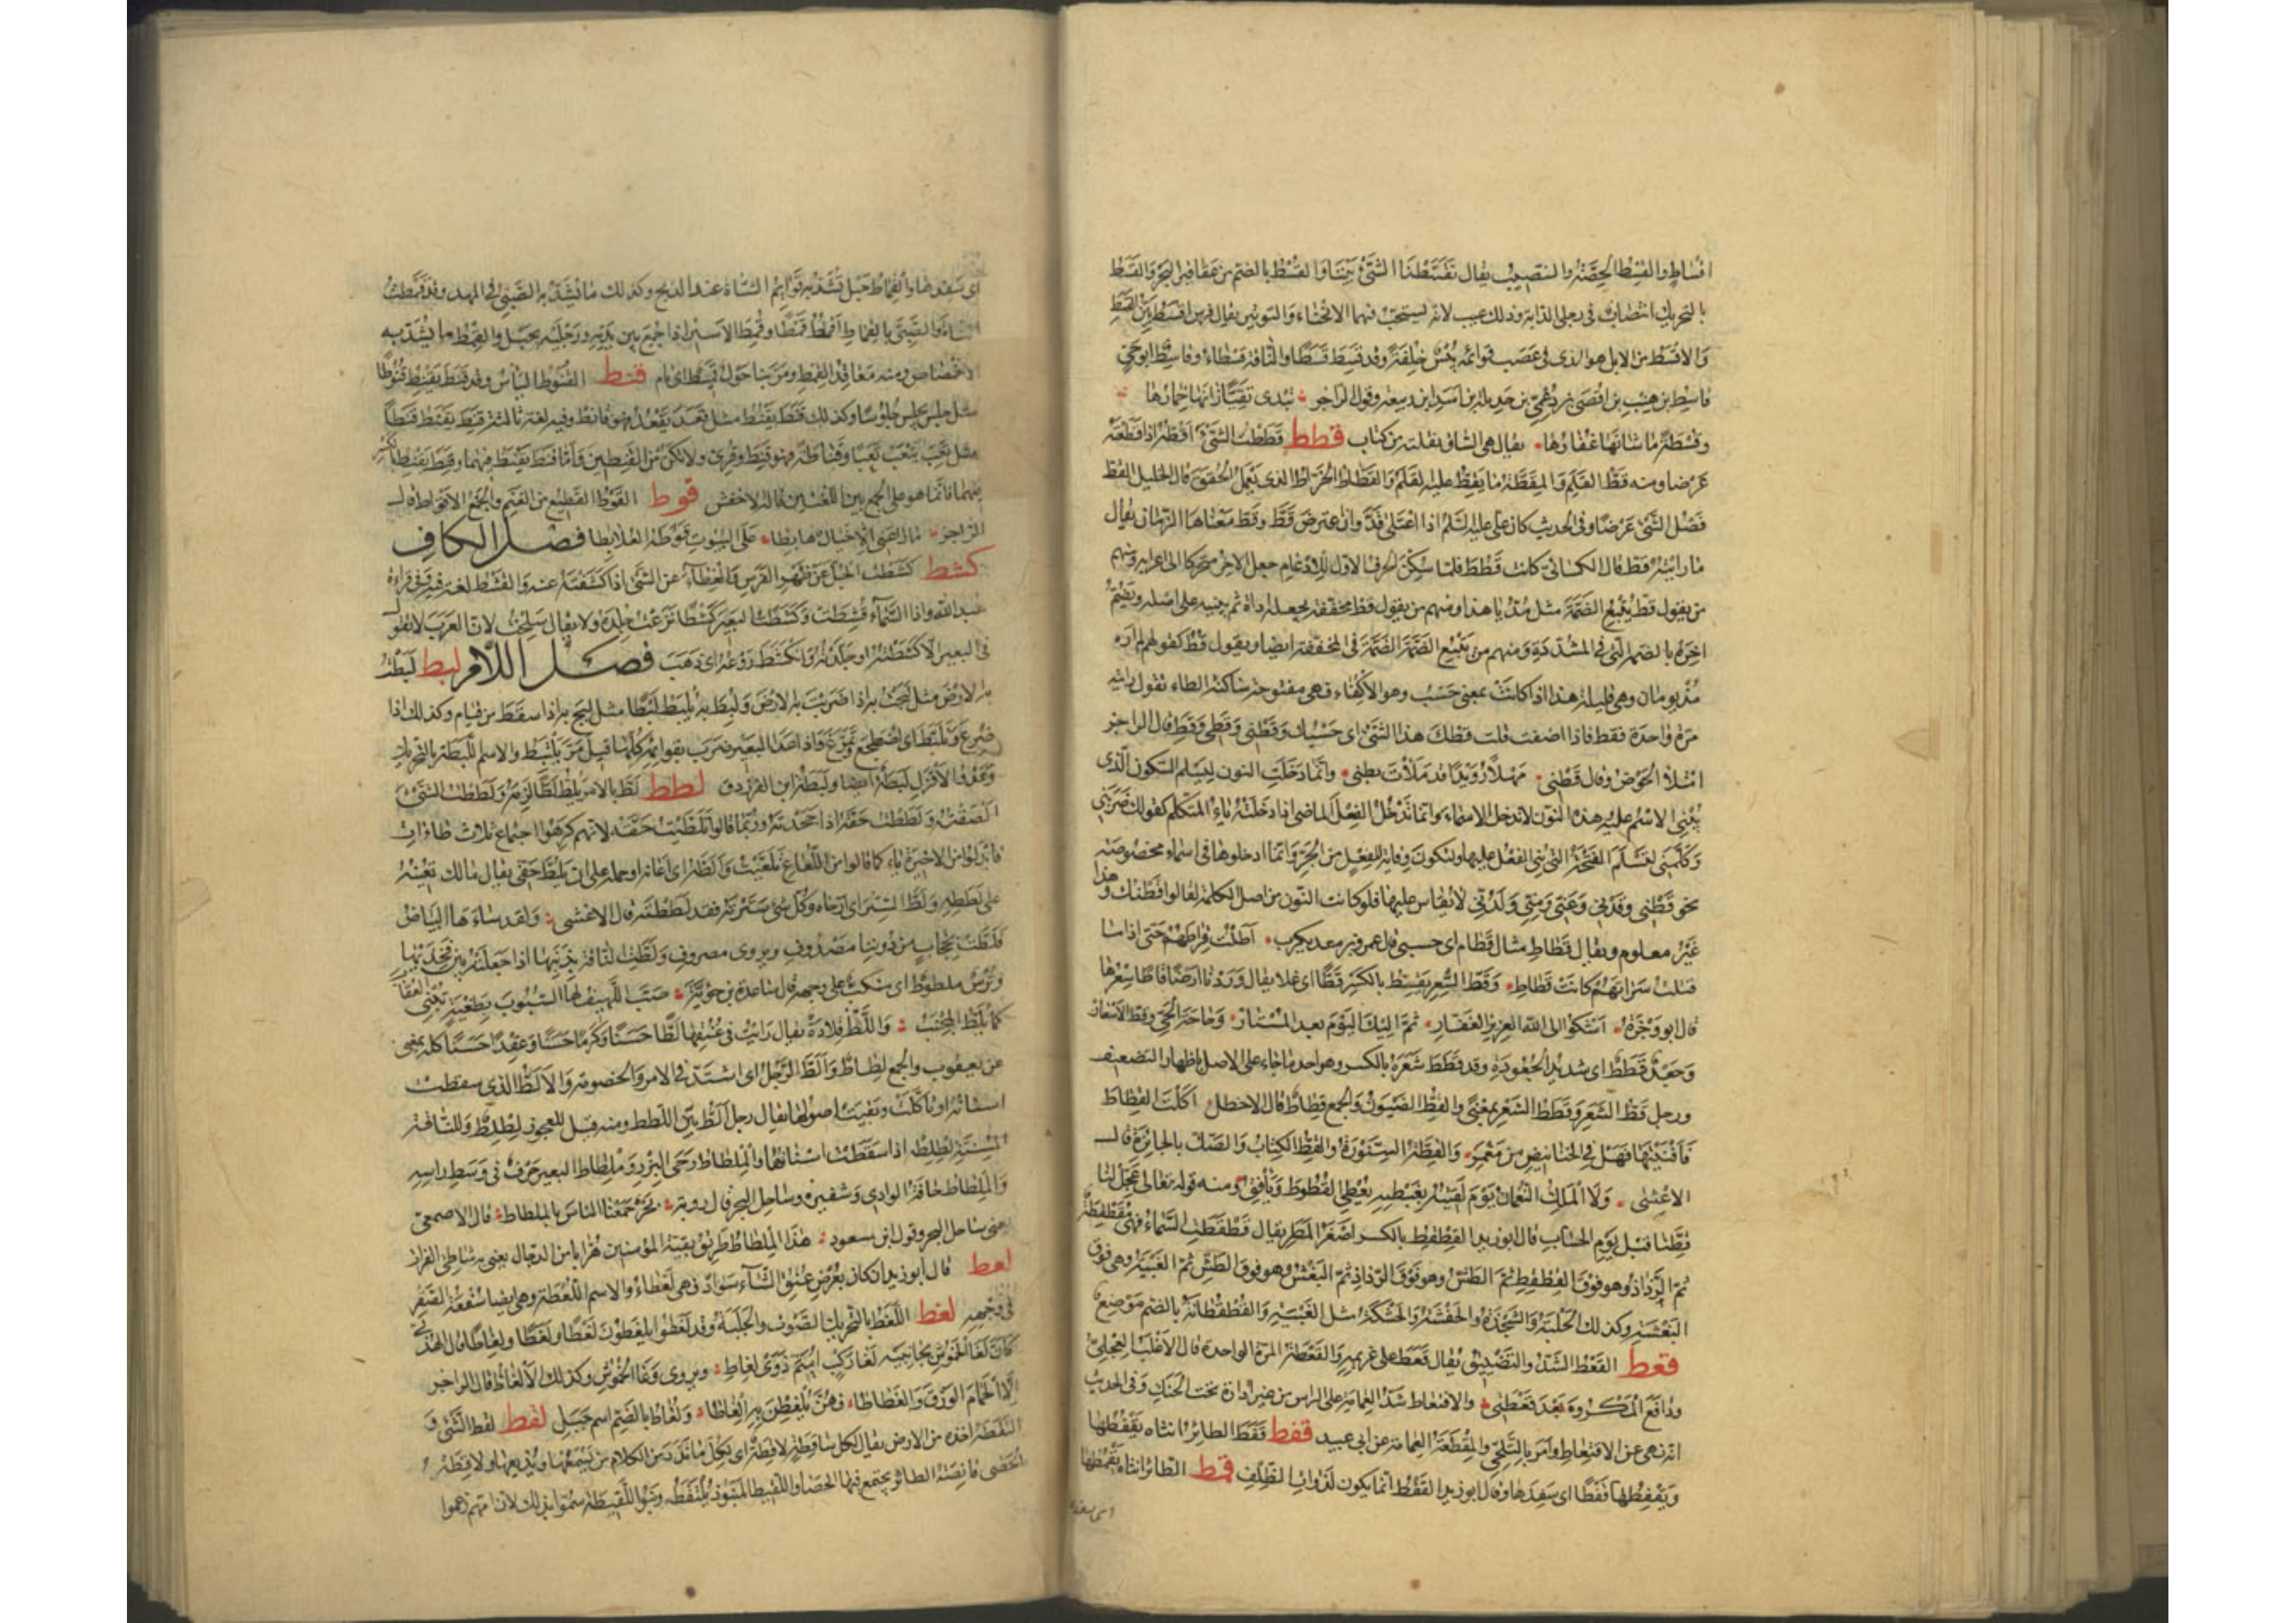 اقساط والقسط الحصة والنصيب يقال تقسطنا الشئ بيننا والقسط بالضم من عقاقير البحر والقسط
بالتحريك انتصاب فى رجلى الدابة وذلك عيب لانه يستحب فيهما الانحناء والتوتير يقال فرس اقسط بين القسط
والاقسط من الابل هو الذى فى عصب قوائمه يبس خلقة وقد قسط قسطا والناقة قسطاء وقاسط ابو حى
قاسط بن هنب بن افصى بن دعمى بن جديلة بن اسد بن ربيعة وقول الراجز تبدى نقيا زانها خمارها
وقسطة ما شانها غفارها يقال هى الساق نقلته من كتاب قطط قططت الشئ اقطه اذا قطعته
عرضا ومنه قط القلم والمقطة ما يقط عليه القلم والقطاط الخراط الذى يعمل الحقق قال الخليل القط
فصل الشئ عرضا وفى الحديث كان على عليه السلم اذا اعتلى قد وان اعترض قط وقط معناها الزمان يقال
ما رايته قط قال الكسائى كانت قطط فلما سكن الحرف الاول للادغام جعل الاخر متحركا الى اعرابه ومنهم
من يقول قط يتبع الضمة الضمة مثل مد يا هذا ومنهم من يقول قط مخففة يجعله اداة ثم يبنيه على اصله ويضم
اخره بالضمة التى فى المشددة ومنهم من يتبع الضمة الضمة فى المخففة ايضا ويقول قط كقولهم لم اره
مذ يومان وهى قليلة هذا اذا كانت بمعنى حسب وهو الاكتفاء فهى مفتوحة ساكنة الطاء تقول رايته
مرة واحدة فقط فاذا اضفت قلت قطك هذا الشئ اى حسبك وقطنى وقطى وقط قال الراجز
امتلا الحوض وقال قطنى مهلا رويدا قد ملأت بطنى وانما دخلت النون ليسلم السكون الذى
يبنى الاسم عليه وهذه النون لا تدخل الاسماء وانما تدخل الفعل الماضى اذا دخلته ياء المتكلم كقولك ضربنى
وكلمنى لتسلم الفتحة التى بنى الفعل عليها ولتكون وقاية للفعل من الجر وانما ادخلوها فى اسماء مخصوصة
نحو قطنى وقدنى وعنى ومنى ولدنى لا يقاس عليها فلو كانت النون من اصل الكلمة لقالوا قطنك وهذا
غير معلوم ويقال قطاط مثال قطام اى حسبى قال عمرو بن معديكرب اطلت فراطهم حتى اذا ما
قتلت سراتهم كانت قطاط وقط السعر يقط بالكسر قطا اى غلا يقال وردنا ارضا قاطا سعرها
قال ابو وجزة اشكو الى الله العزيز الغفار ثم اليك اليوم بعد المستار وحاجة الحى وقط الاسعار
وجعد قطط اى شديد الجعودة وقد قطط شعره بالكسر وهو احد ما جاء على الاصل باظهار التضعيف
ورجل قط الشعر وقطط الشعر بمعنى والقط الضيون والجمع قطاط قال الاخطل اكلت القطاط
فافنيتها فهل فى الخنانيص من مغمز والقطة السنورة والقط الكتاب والصك بالجائزة قال
الاعشى ولا الملك النعمان يوم لقيته بغبطته يعطى القطوط ويأفق ومنه قوله تعالى عجل لنا
قطنا قبل يوم الحساب قال ابو زيد القطقط بالكسر اصغر المطر يقال قطقطت السماء فهى مقطقطة
ثم الرذاذ وهو فوق القطقط ثم الطش وهو فوق الرذاذ ثم البغش وهو فوق الطش ثم الغبية وهى فوق
البغشة وكذلك الحلبة والشجذة والحفشة والحشكة مثل الغبية والقطقطانة بالضم موضع
قعط القعط الشد والتضييق يقال قعط على غريمه والقعطة المرة الواحدة قال الاغلب العجلى
ودافع المكروه بعد قعطتى والاقتعاط شد العمامة على الراس من غير ادارة تحت الحنك وفى الحديث
انه نهى عن الاقتعاط وامر بالتلحى والمقعطة العمامة عن ابى عبيد قفط قفط الطائر انثاه يقفطها
ويقفطها قفطا اى سفدها وقال ابو زيد القفط انما يكون لذوات الظلف قمط الطائر انثاه يقمطها
اى سفدها
اى سفدها والقماط حبل تشد به قوائم الشاة عند الذبح وكذلك ما يشد به الصبى فى المهد وقد قمطت
الشاة والصبى بالقماط اقمط قمطا وقمط الاسير اذا جمع بين يديه ورجليه بحبل والقمط ما يشد به
الاخصاص ومنه معاقد القمط ومر بنا حول قميط اى تام قنط القنوط الياس وقد قنط يقنط قنوطا
مثل جلس يجلس جلوسا وكذلك قنط يقنط مثل قعد يقعد فهو قانط وفيه لغة ثالثة قنط يقنط قنطا
مثل تعب يتعب تعبا وقناطة فهو قنط وقرئ ولا تكن من القنطين واما قنط يقنط فيهما وقنط يقنط بالكسر
فيهما فانما هو على الجمع بين اللغتين قاله الاخفش قوط القوط القطيع من الغنم والجمع الاقواط قال
الراجز ما راعنى الا خيال هابطا على البيوت قوطه العلابطا فصل الكاف
كشط كشطت الجل عن ظهر الفرس والغطاء عن الشئ اذا كشفته عنه والقشط لغة فيه وفى قراءة
عبد الله واذا السماء قشطت وكشطت البعير كشطا نزعت جلده ولا يقال سلخت لان العرب لا تقول
فى البعير الا كشطته او جلدته وانكشط روعه اى ذهب فصل اللام لبط لبطت
به الارض مثل لبجت به اذا ضربت به الارض ولبط به يلبط لبطا مثل لبج به اذا سقط من قيام وكذلك اذا
صرع وتلبط اى اضطجع وتمرغ واذا عدا البعير وضرب بقوائمه كلها قيل مر يلتبط والاسم اللبطة بالتحريك
وعدو الاقزل لبطة ايضا ولبطة ابن الفرزدق لطط لط بالامر يلط لطا لزمه ولططت الشئ
الصقته ولططت حقه اذا جحدته وربما قالوا تلطيت حقه لانهم كرهوا اجتماع ثلاث طاءات
فابدلوا من الاخيرة ياء كما قالوا من اللعاع تلعيت والطه اى اعانه او حمله على ان يلط حقى يقال مالك تعينه
على لططه ولط الستر اى ارخاه وكل شئ سترته فقد لططته قال الاعشى ولقد ساءها البياض
فلطت بحجاب من دوننا مصدوف ويروى مصروف ولطت الناقة بذنبها اذا جعلته بين فخذيها
وترس ملطوط اى منكب على وجهه قال ساعدة بن جؤية صب اللهيف لها السبوب بطغية تنبى العقاب
كما يلط المجنب واللط قلادة يقال رايت فى عنقها لطا حسنا وكرما حسنا وعقدا حسنا كله بمعنى
عن يعقوب والجمع لطاط والط الرجل اى اشتد فى الامر والخصومة والالط الذى سقطت
اسنانه او تاكلت وبقيت اصولها يقال رجل الط بين اللطط ومنه قيل للعجوز لطلط وللناقة
المسنة لطلط اذا سقطت اسنانها والملطاط رحى البزر وملطاط البعير حرف فى وسط راسه
والملطاط حافة الوادى وشفيره وساحل البحر قال روبة نحن جمعنا الناس بالملطاط قال الاصمعى
يعنى ساحل البحر وقول ابن مسعود هذا الملطاط طريق بقية المؤمنين هرابا من الدجال يعنى به شاطئ الفرات
لعط قال ابو زيد ان كان بعرض عنق الشاء سواد فهى لعطاء والاسم اللعطة وهى ايضا سفعة الصقر
فى وجهه لغط اللغط بالتحريك الصوت والجلبة وقد لغطوا يلغطون لغطا ولغطا ولغاطا قال الهذلى
كان لغا الخموش بجانبيه لغا ركب اميم ذوى لغاط ويروى وغا الخموش وكذلك الالغاط قال الراجز
الا الحمام الورق والغطاطا فهن يلغطن به الغاطا ولغاط بالضم اسم جبل لقط لقط الشئ و
التقطه اخذه من الارض يقال لكل ساقطة لاقطة اى لكل ما ندر من الكلام من يسمعها ويذيعها ولاقطة
الحصى قانصة الطائر يجتمع فيها الحصا واللقيط المنبوذ يلتقط وبنو اللقيطة سموا بذلك لان امهم زعموا